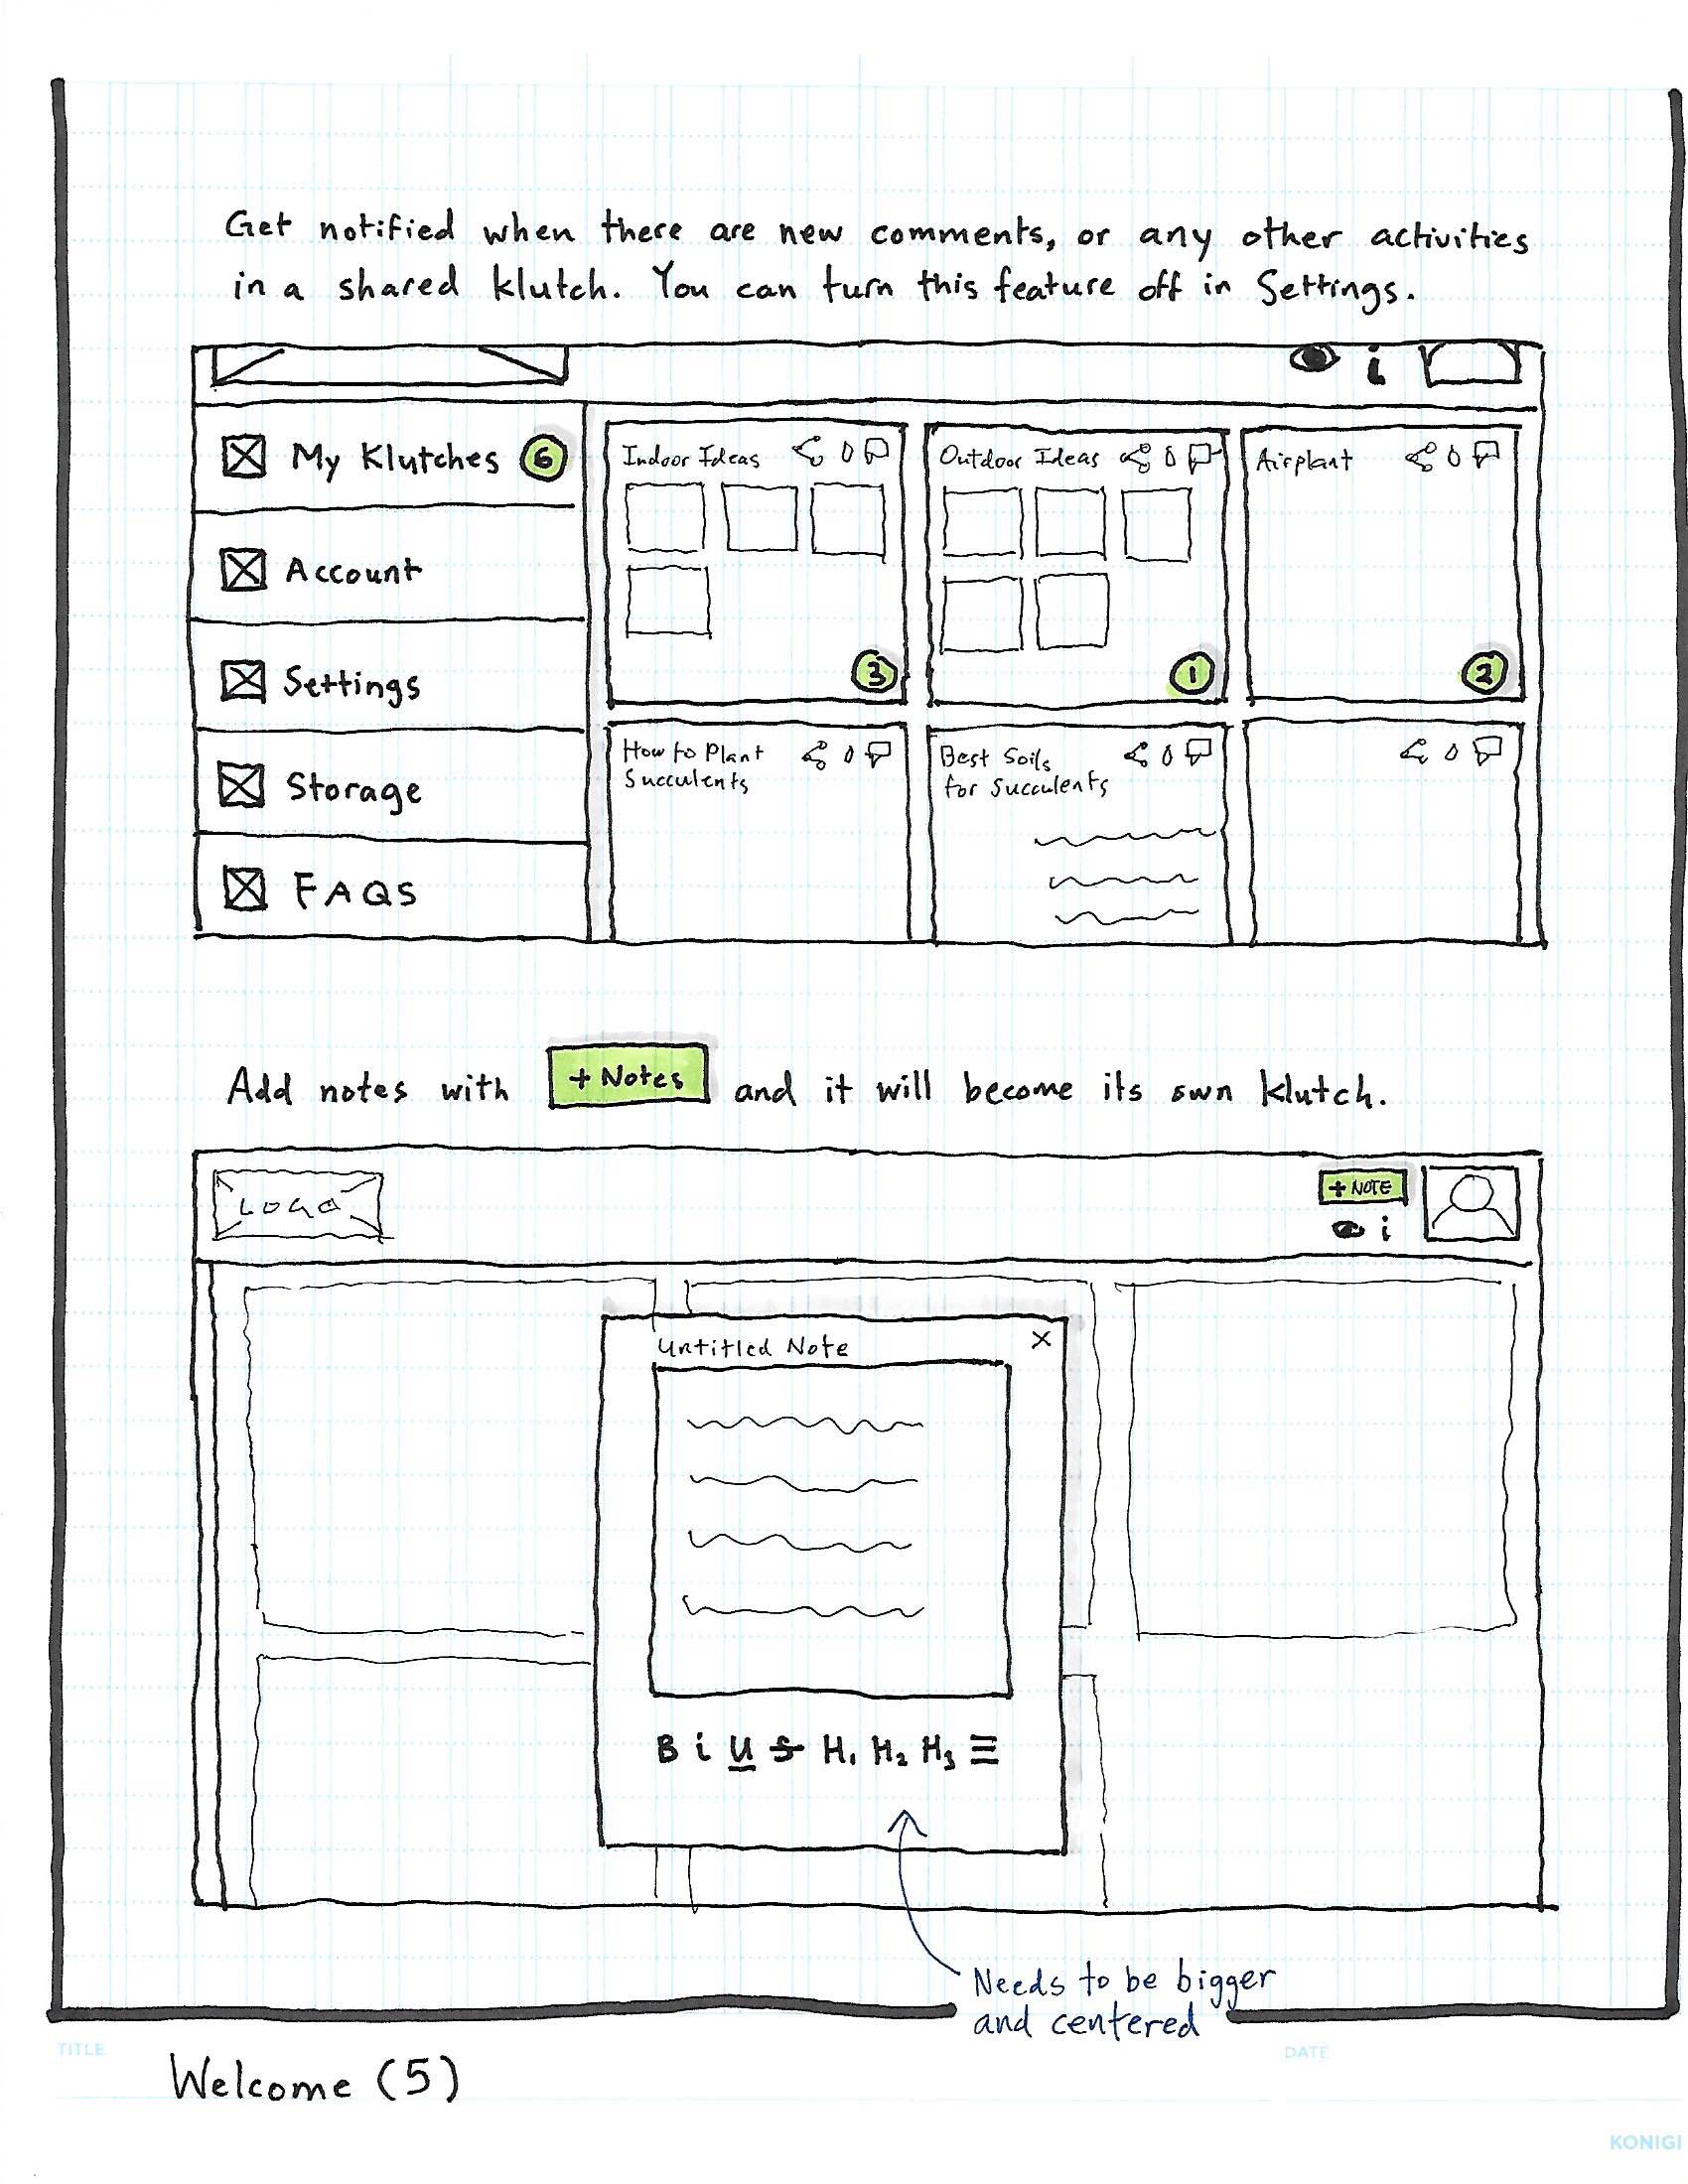 Get notified when there are new comments, or any other activities
in a shared klutch. You can turn this feature off in Settings.
i
My Klutches 6
Account
Settings
Storage
FAQS
Indoor Ideas
3
Outdoor Ideas
1
Airplant
2
How to Plant
Succulents
Best Soils
for Succulents
Add notes with + Notes and it will become its own klutch.
LOGO
+ NOTE
i
Untitled Note X
B i U S H1 H2 H3
Needs to be bigger
and centered
TITLE
Welcome (5)
DATE
KONIGI